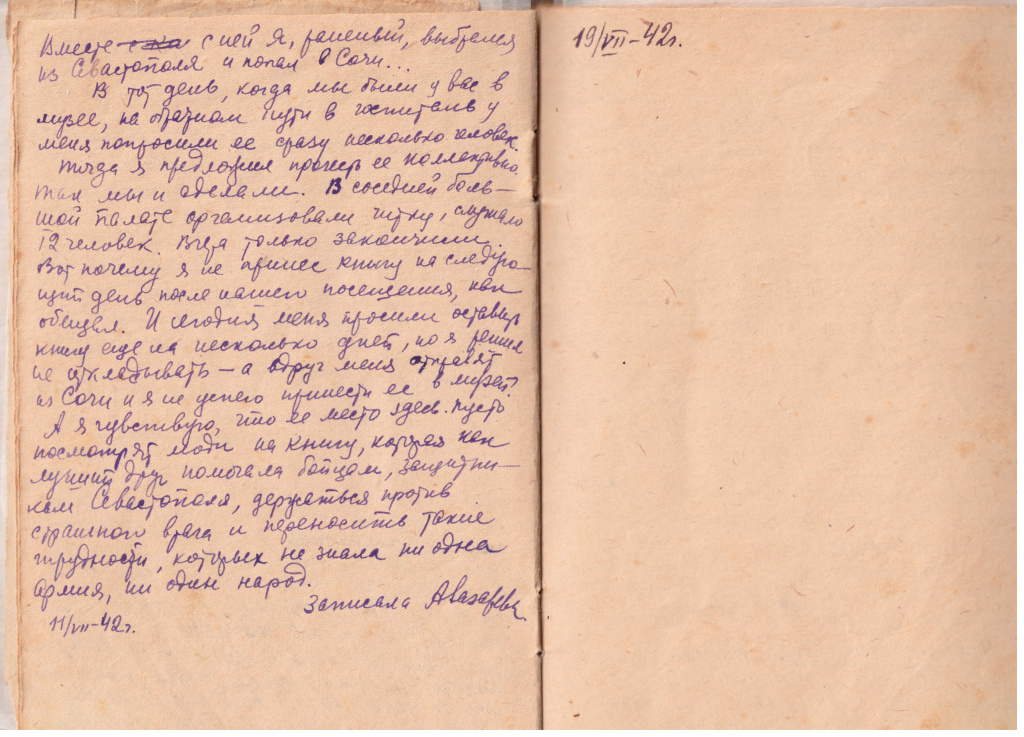 Вместе с ней я, раненый, выбрался
из Севастополя и попал в Сочи...
В тот день, когда мы были у вас в
музее, на обратном пути в госпиталь у
меня попросили ее сразу несколько человек.
Тогда я предложил прочесть ее коллективно.
Так мы и сделали. В соседней боль-
шой палате организовали читку, слушало
12 человек. Вчера только закончили.
Вот почему я не принес книгу на следую-
щий день после нашего посещения, как
обещал. И сегодня меня просили оставить
книгу еще на несколько дней, но я решил
не откладывать – а вдруг меня отправят
из Сочи и я не успею принести ее в музей?
А я чувствую, что ее место здесь. Пусть
посмотрят люди на книгу, которая как
лучший друг помогала бойцам, защитни-
кам Севастополя, держаться против
страшного врага и переносить такие
трудности, которых не знала ни одна
армия, ни один народ.
Записала А Лазарева
11/VII-42г.
19/VII-42г.